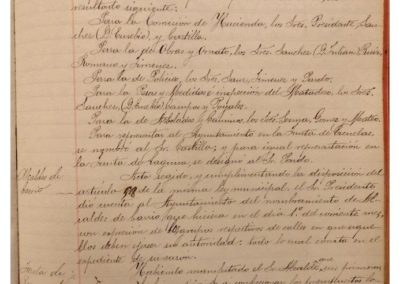 resultado siguiente:
Para la Comision de Hacienda, los Sres. Presidente, San-
chez (D. Eusebio), y Castilla.
Para la de Obras y Ornato, los Sres. Sanchez (D. Julian),
Romano y Jimenez.
Para la de Policia, los Sres. Sanz, Jimenez y Pardo.
Para la de Pesas y Medidas é inspeccion del Matadero, los Sres.
Sanchez, (D. Eusebio), Campos y
Para la de y Caminos, los Sres. Gomez y Mateo.
Para representar al Ayuntamiento en la Junta de Escuelas,
se nombró al Sr. Castilla; y para igual representacion en
la Junta de Laguna, se designó al Sr. Pardo.
Alcaldes de
barrio
Acto seguido, y cumplimentando la disposicion del
artículo de la misma ley municipal, el Sr. Presidente
dió cuenta al Ayuntamiento del nombramiento de Al-
caldes de barrio que hiciera en el dia 1º del corriente mes,
con expresion de los grupos respectivos de calles en que aque-
llos deben ejercer su autoridad: todo lo cual consta en el
expediente de su razon.
de
Habiendo manifestado el Sr. Alcalde que